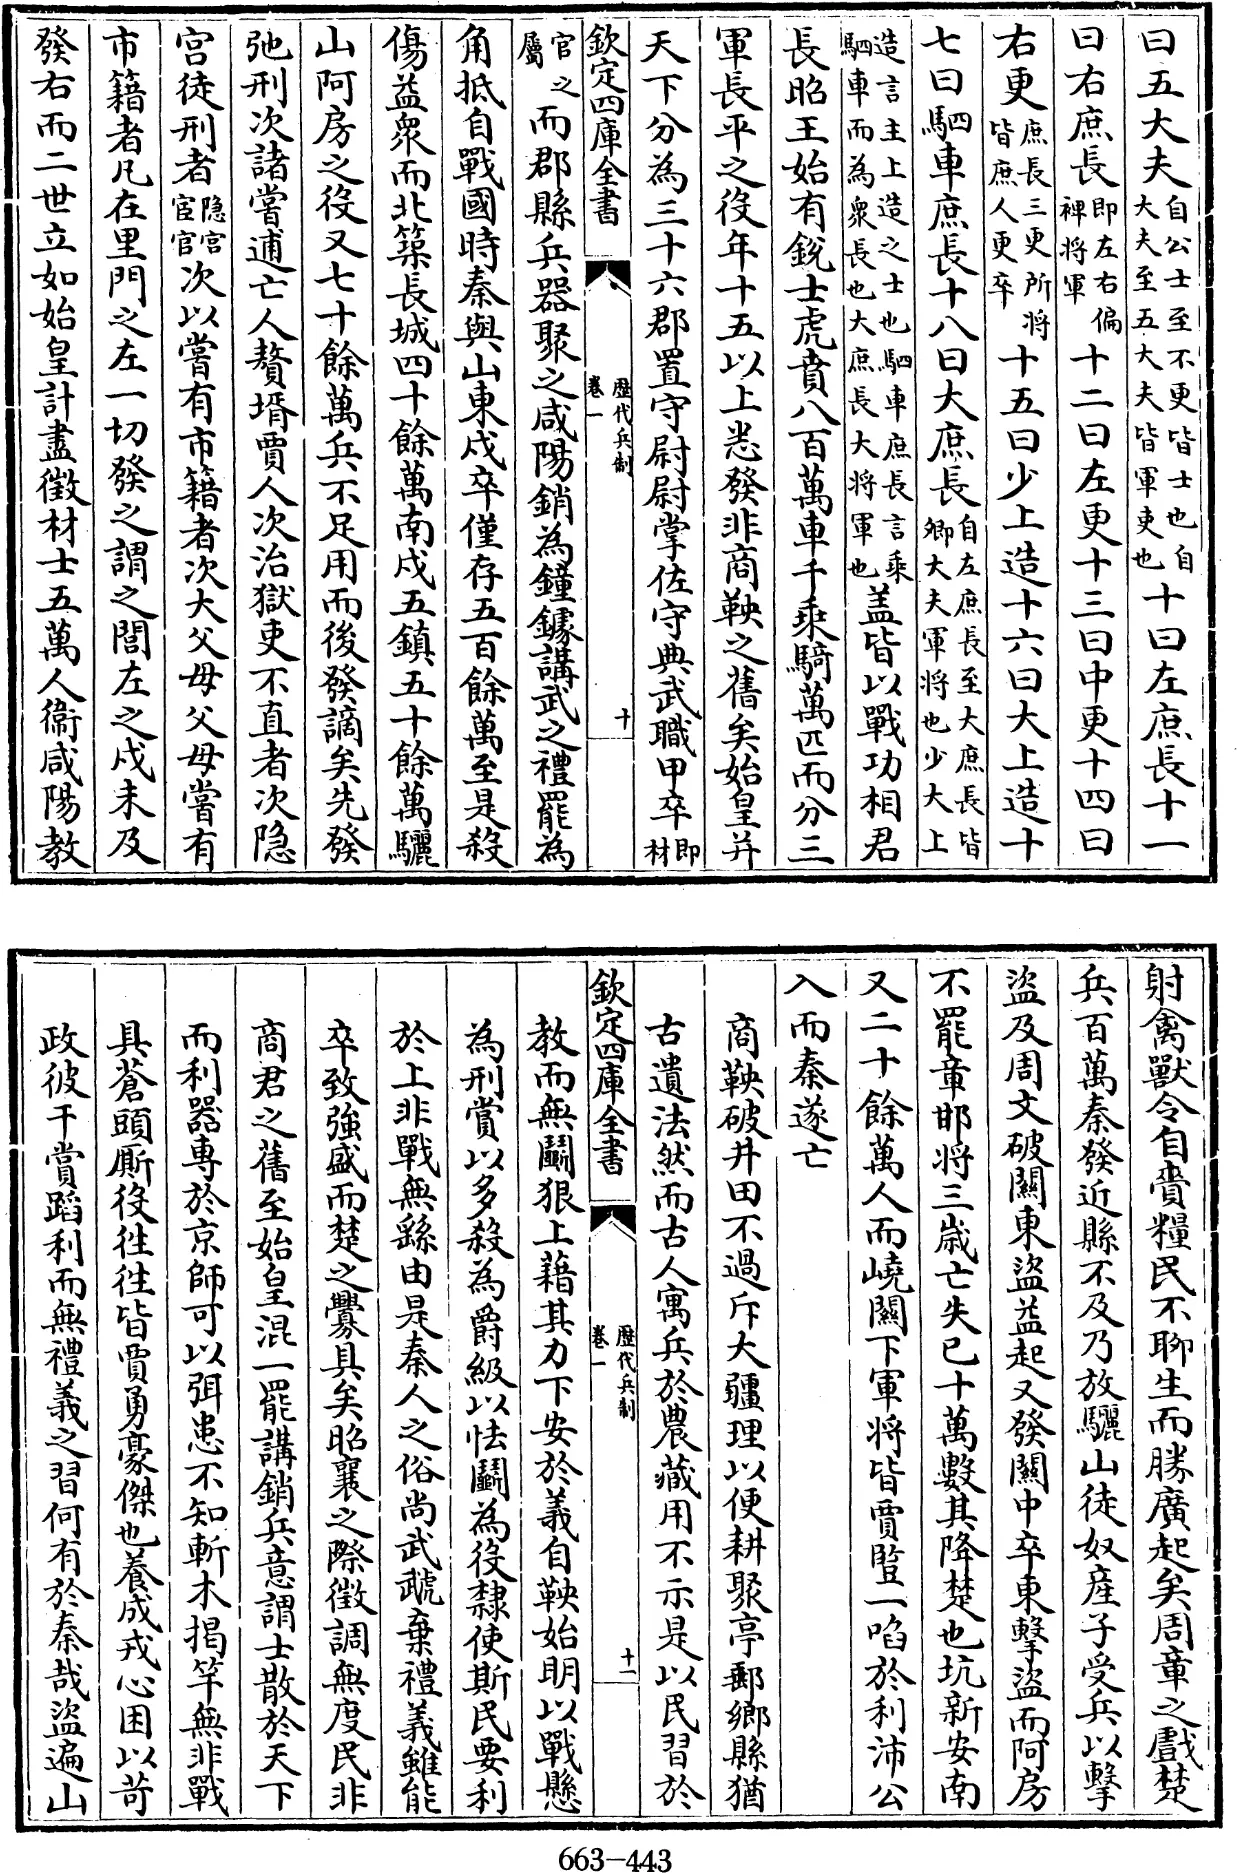 曰五大夫自公士至不更皆士也自大夫至五大夫皆軍吏也十曰左庶長十一
曰右庶長即左右偏裨将軍十二曰左更十三曰中更十四曰
右更庶長三更所將皆庶人更卒十五曰少上造十六曰大上造十
七曰駟車庶長十八曰大庶長自左庶長至大庶長皆卿大夫軍将也少大上
造言主上造之士也駟車庶長言乘駟車而為衆長也大庶長大将軍也盖皆以戰功相君
長昭王始有銳士虎賁八百萬車千乘騎萬匹而分三
軍長平之役年十五以上悉發非商鞅之舊矣始皇并
天下分為三十六郡置守尉尉掌佐守典武職甲卒即材
欽定四庫全書
歷代兵制
卷一
十
官之屬而郡縣兵器聚之咸陽銷為鐘鐻講武之禮罷為
角抵自戰國時秦與山東戍卒僅存五百餘萬至是殺
傷益衆而北築長城四十餘萬南戍五鎮五十餘萬驪
山阿房之役又七十餘萬兵不足用而後發謫矣先發
弛刑次諸嘗逋亡人贅壻賈人次治獄吏不直者次隐
宫徒刑者隐宫宦官次以嘗有市籍者次大父母父母嘗有
市籍者凡在里門之左一切發之謂之閭左之戍未及
發右而二世立如始皇計盡徵材士五萬人衞咸陽教
射禽獸令自賫糧民不聊生而勝廣起矣周章之戲楚
兵百萬秦發近縣不及乃放驪山徒奴產子受兵以擊
盜及周文破關東盜益起又發關中卒東擊盜而阿房
不罷章邯将三歲亡失已十萬數其降楚也坑新安南
又二十餘萬人而嶢關下軍将皆賈豎一啗於利沛公
入而秦遂亡
商鞅破井田不過斥大疆理以便耕聚亭郵鄉縣猶
古遺法然而古人寓兵於農藏用不示是以民習於
欽定四庫全書
歷代兵制
卷一
十一
教而無鬬狠上藉其力下安於義自鞅始明以戰懸
為刑賞以多殺為爵級以怯鬬為役隸使斯民要利
於上非戰無繇由是秦人之俗尚武虣棄禮義雖能
卒致強盛而楚之釁具矣昭襄之際徵調無度民非
商君之舊至始皇混一罷講銷兵意謂士散於天下
而利器專於京師可以弭患不知斬木揭竿無非戰
具蒼頭厮役往往皆賈勇豪傑也養成戎心困以苛
政彼干賞蹈利而無禮義之習何有於秦哉盜遍山
663-443